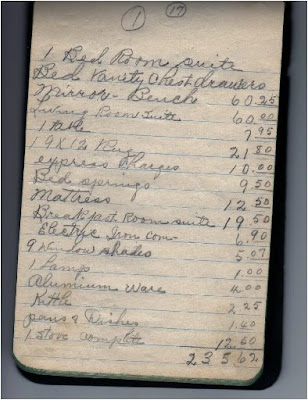 1 17
1 Bed Room suite
Bed Vanity Chest drawers
Mirror - Bench 60.25
Living Room Suite 60.00
1 Table 7.95
1 9X12 Rug 21.80
express Charges 10.00
Bed springs 9.50
Mattress 12.50
Breakfast Room suite 19.50
Electric Iron com 6.90
9 Window shades 5.07
1 Lamp 1.00
Alumium Ware 4.00
Kittle 2.25
pans & Dishes 1.40
1 Stove complete 12.60
235 62